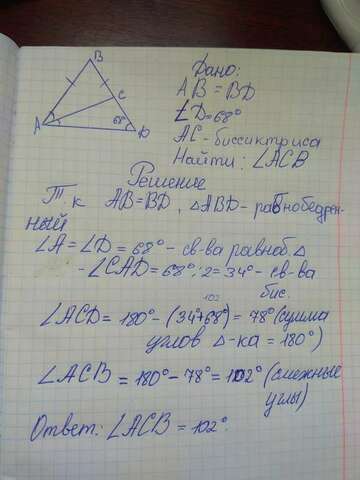 B
C
A
68°
D
Дано:
AB = BD
∠D = 68°
AC - биссиктриса
Найти: ∠ACB
Решение
Т.к AB = BD, △ABD - равнобедрен-
ный
∠A = ∠D = 68° - св-ва равноб. △
- ∠CAD = 68° : 2 = 34° - св-ва
бис.
102
∠ACD = 180° - (34°+68°) = 78° (сумма
углов △-ка = 180°)
∠ACB = 180° - 78° = 102° (смежные
углы)
Ответ: ∠ACB = 102°.